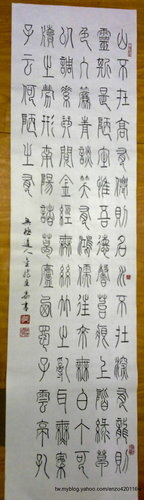 山不在高有仙則名水不在深有龍則
靈斯是陋室惟吾德馨苔痕上階綠草
色入簾青談笑有鴻儒往來無白丁可
以調素琴閱金經無絲竹之亂耳無案
牘之勞形南陽諸葛廬西蜀子雲亭孔
子云何陋之有
tw.myblog.yahoo.com/enzo420116